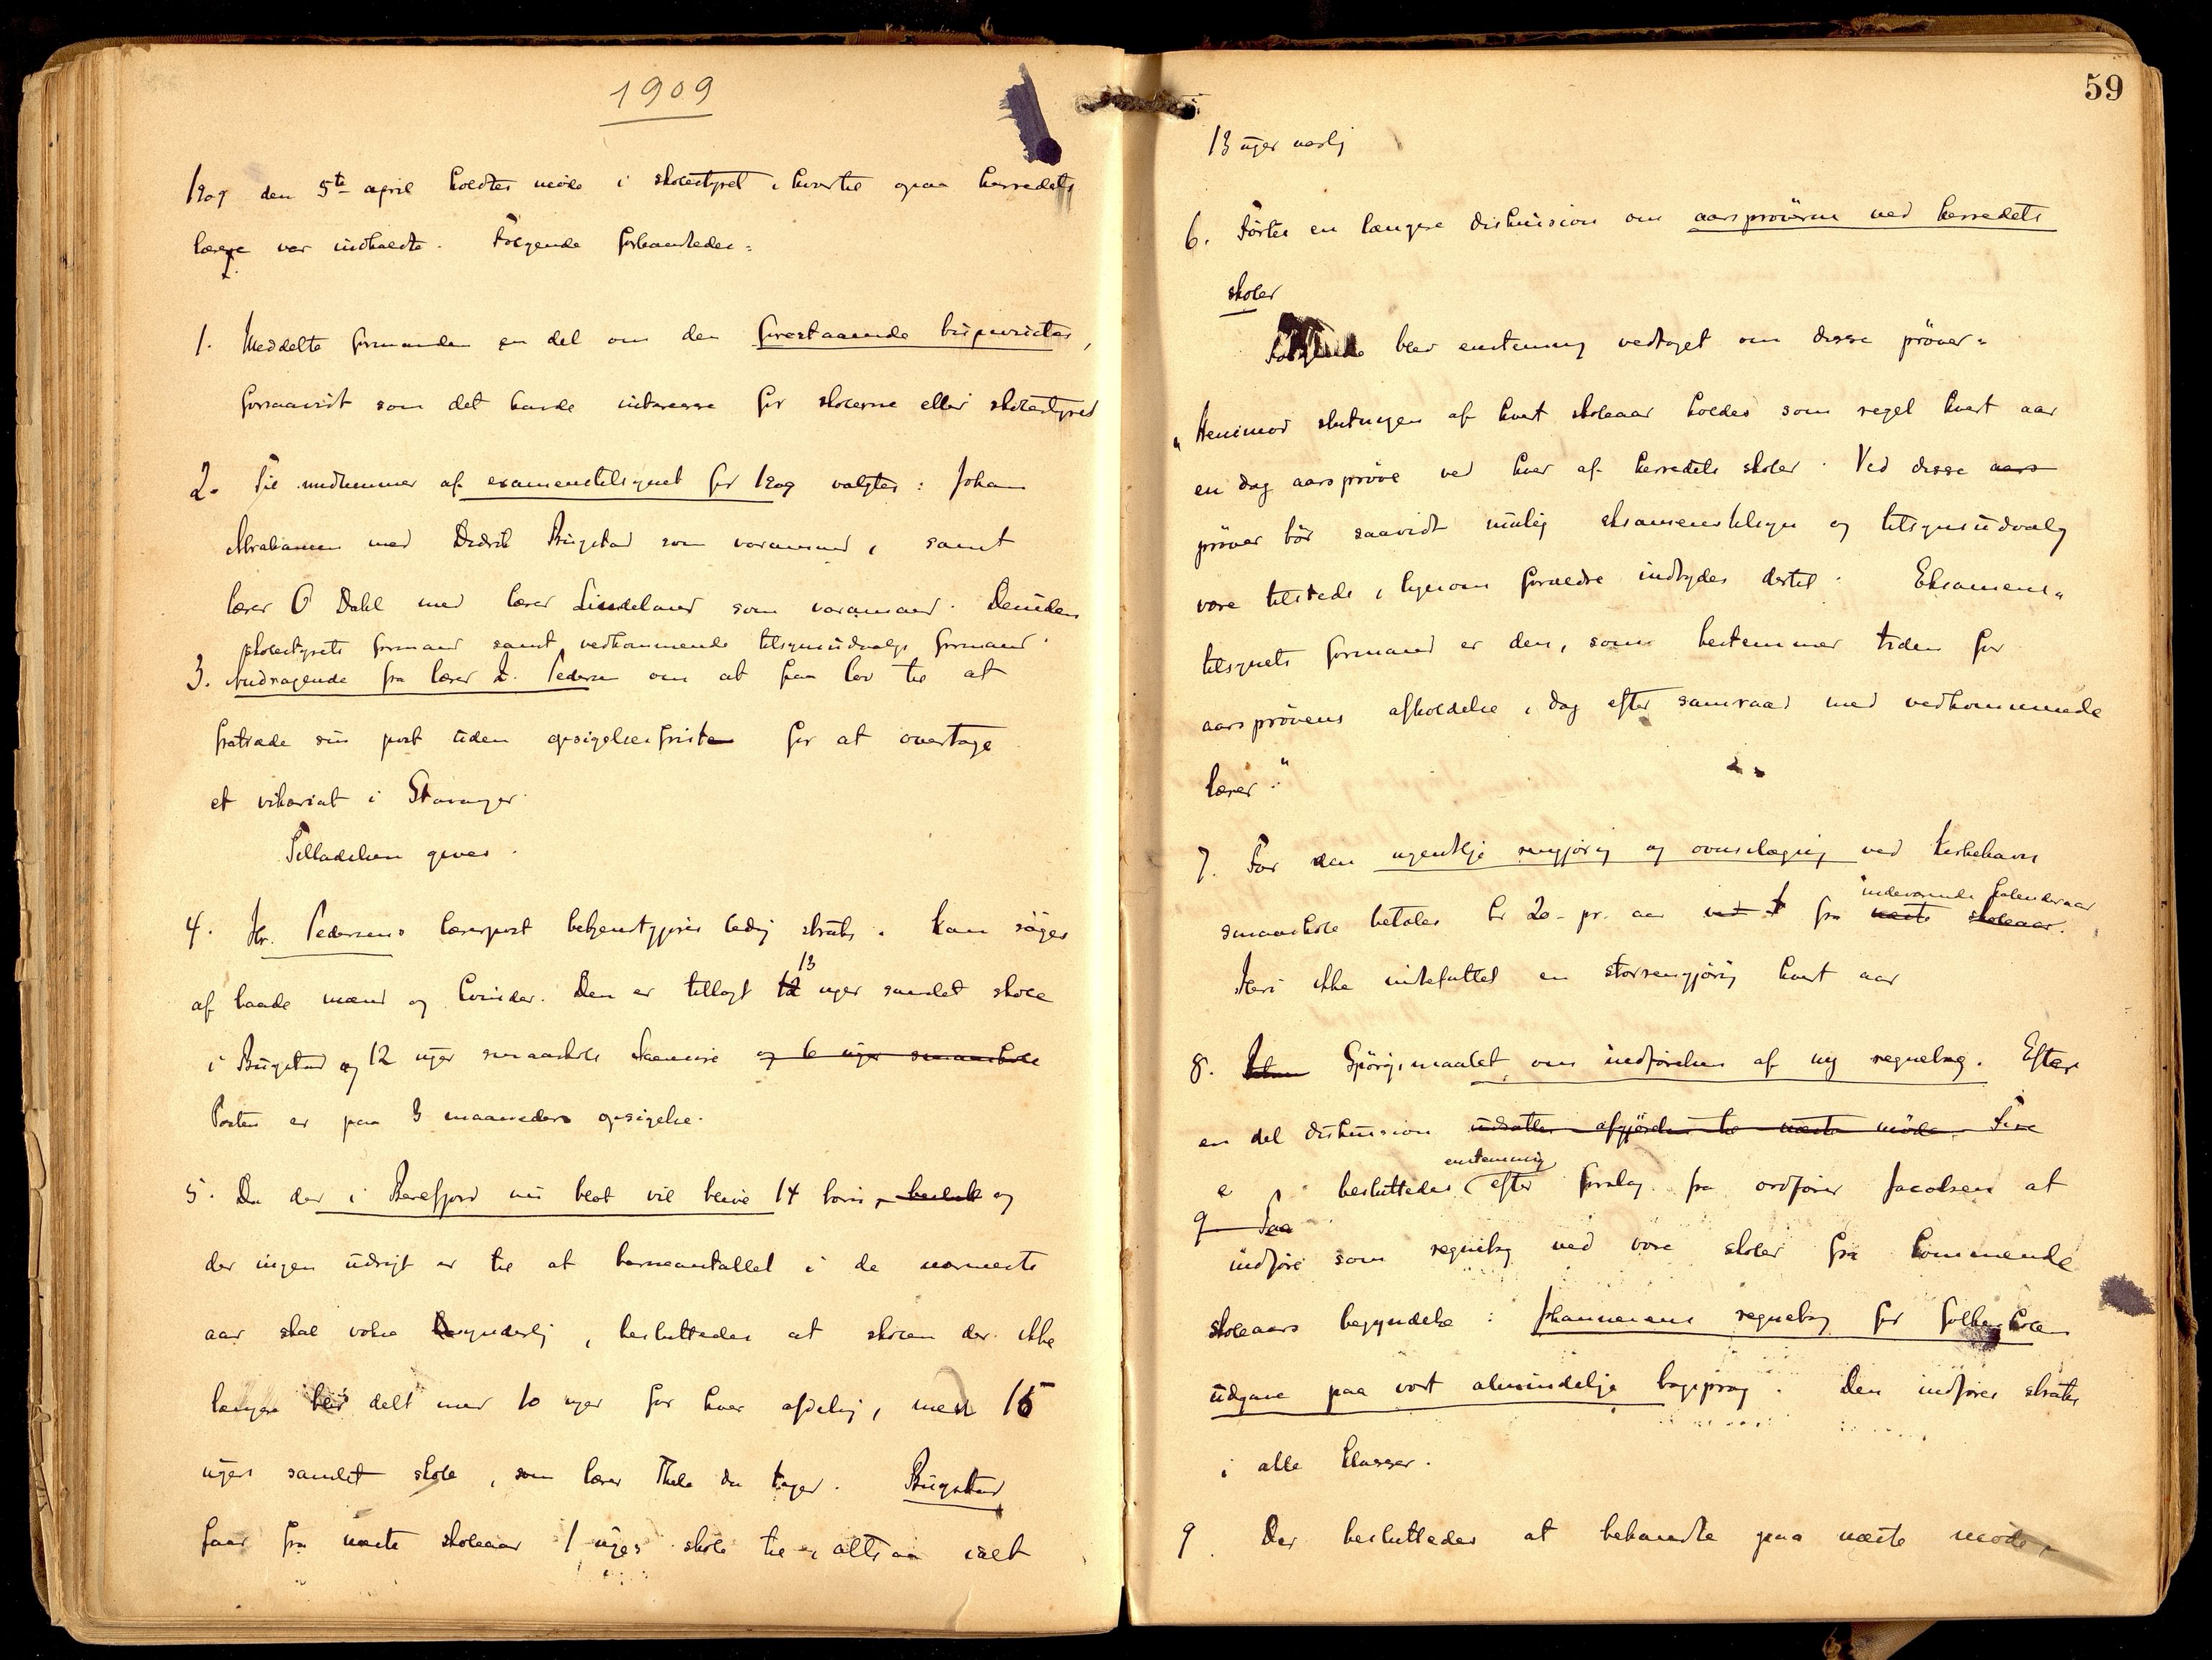 1909
1909 den 5te april holdtes møde i skolestyret, hvortil ogsaa herredets
lærere var indkaldte. Følgende forhandledes:
1. Meddelte formanden en del om den forestaaende bispevisitas,
forsaavidt som det havde interesse for skolerne eller skolestyret
2. Til medlemmer af examenstilsynet for 1909 valgtes: Johan
Abrahamsen med Didrik Bugstad som varamand, samt
lærer O Dahl med lærer Lindeland som varamand. Desuden
skolestyrets formand samt vedkommende tilsynsudvalgs formand.
3. Andragende fra lærer Z. Pedersen om at faa lov til at
fratræde sin post uden opsigelsesfrist for at overtage
et vikariat i Stavanger.
Tilladelsen gives.
4. Hr. Pedersens lærerpost bekjentgjøres ledig straks. Kan søges
af baade mænd og kvinder. Den er tillagt 12 13 uger samlet skole
i Bugstad og 12 uger smaaskole og 6 uger smaaskole
Posten er paa 3 maaneders opsigelse.
5. Da der i nu blot vil blive 14 børn, og
der ingen udsigt er til at barneantallet i de nærmeste
aar skal vokse synderlig, besluttedes at skolen der ikke
længere blir delt med 10 uger for hver afdeling, men 15
ugers samlet skole, som lærer da tager. Bugstad
faar fra næste skoleaar 1 uges skole til, altsaa ialt
59
13 uger aarlig
6. Førtes en længere diskusion om aarsprøverne ved herredets
skoler
Følgende blev enstemmig vedtaget om disse prøver:
"Henimod slutningen af hvert skoleaar holdes som regel hvert aar
en dag aarsprøve ved hver af herredets skoler. Ved disse aars
prøver bør saavidt mulig eksamenstilsyn og tilsynsudvalg
være tilstede, ligesom forældre indbydes dertil. Eksamens-
tilsynets formand er den, som bestemmer tiden for
aarsprøvens afholdelse, dog efter samraad med vedkommende
lærer."
7. For den ugentlige rengjøring og ovnslægning ved Kirkehavn
indeværende kalenderaar
smaaskole betales kr 20- pr. aar fra næste skoleaar.
Heri ikke indbefattet en storrengjøring hvert aar
8. Spørgsmaalet om indførelsen af ny regnebog. Efter
en del diskusion udsattes afgjørelsen til næste møde.
enstemmig
besluttedes efter forslag fra ordfører Jacobsen at
9 Paa
indføre som regnebog ved vore skoler fra kommende
skoleaars begyndelse: Johannesens regnebog for folkeskolen
udgave paa vort almindelige bogsprog. Den indføres straks
i alle klasser.
9. Der besluttedes at behandle paa næste møde,